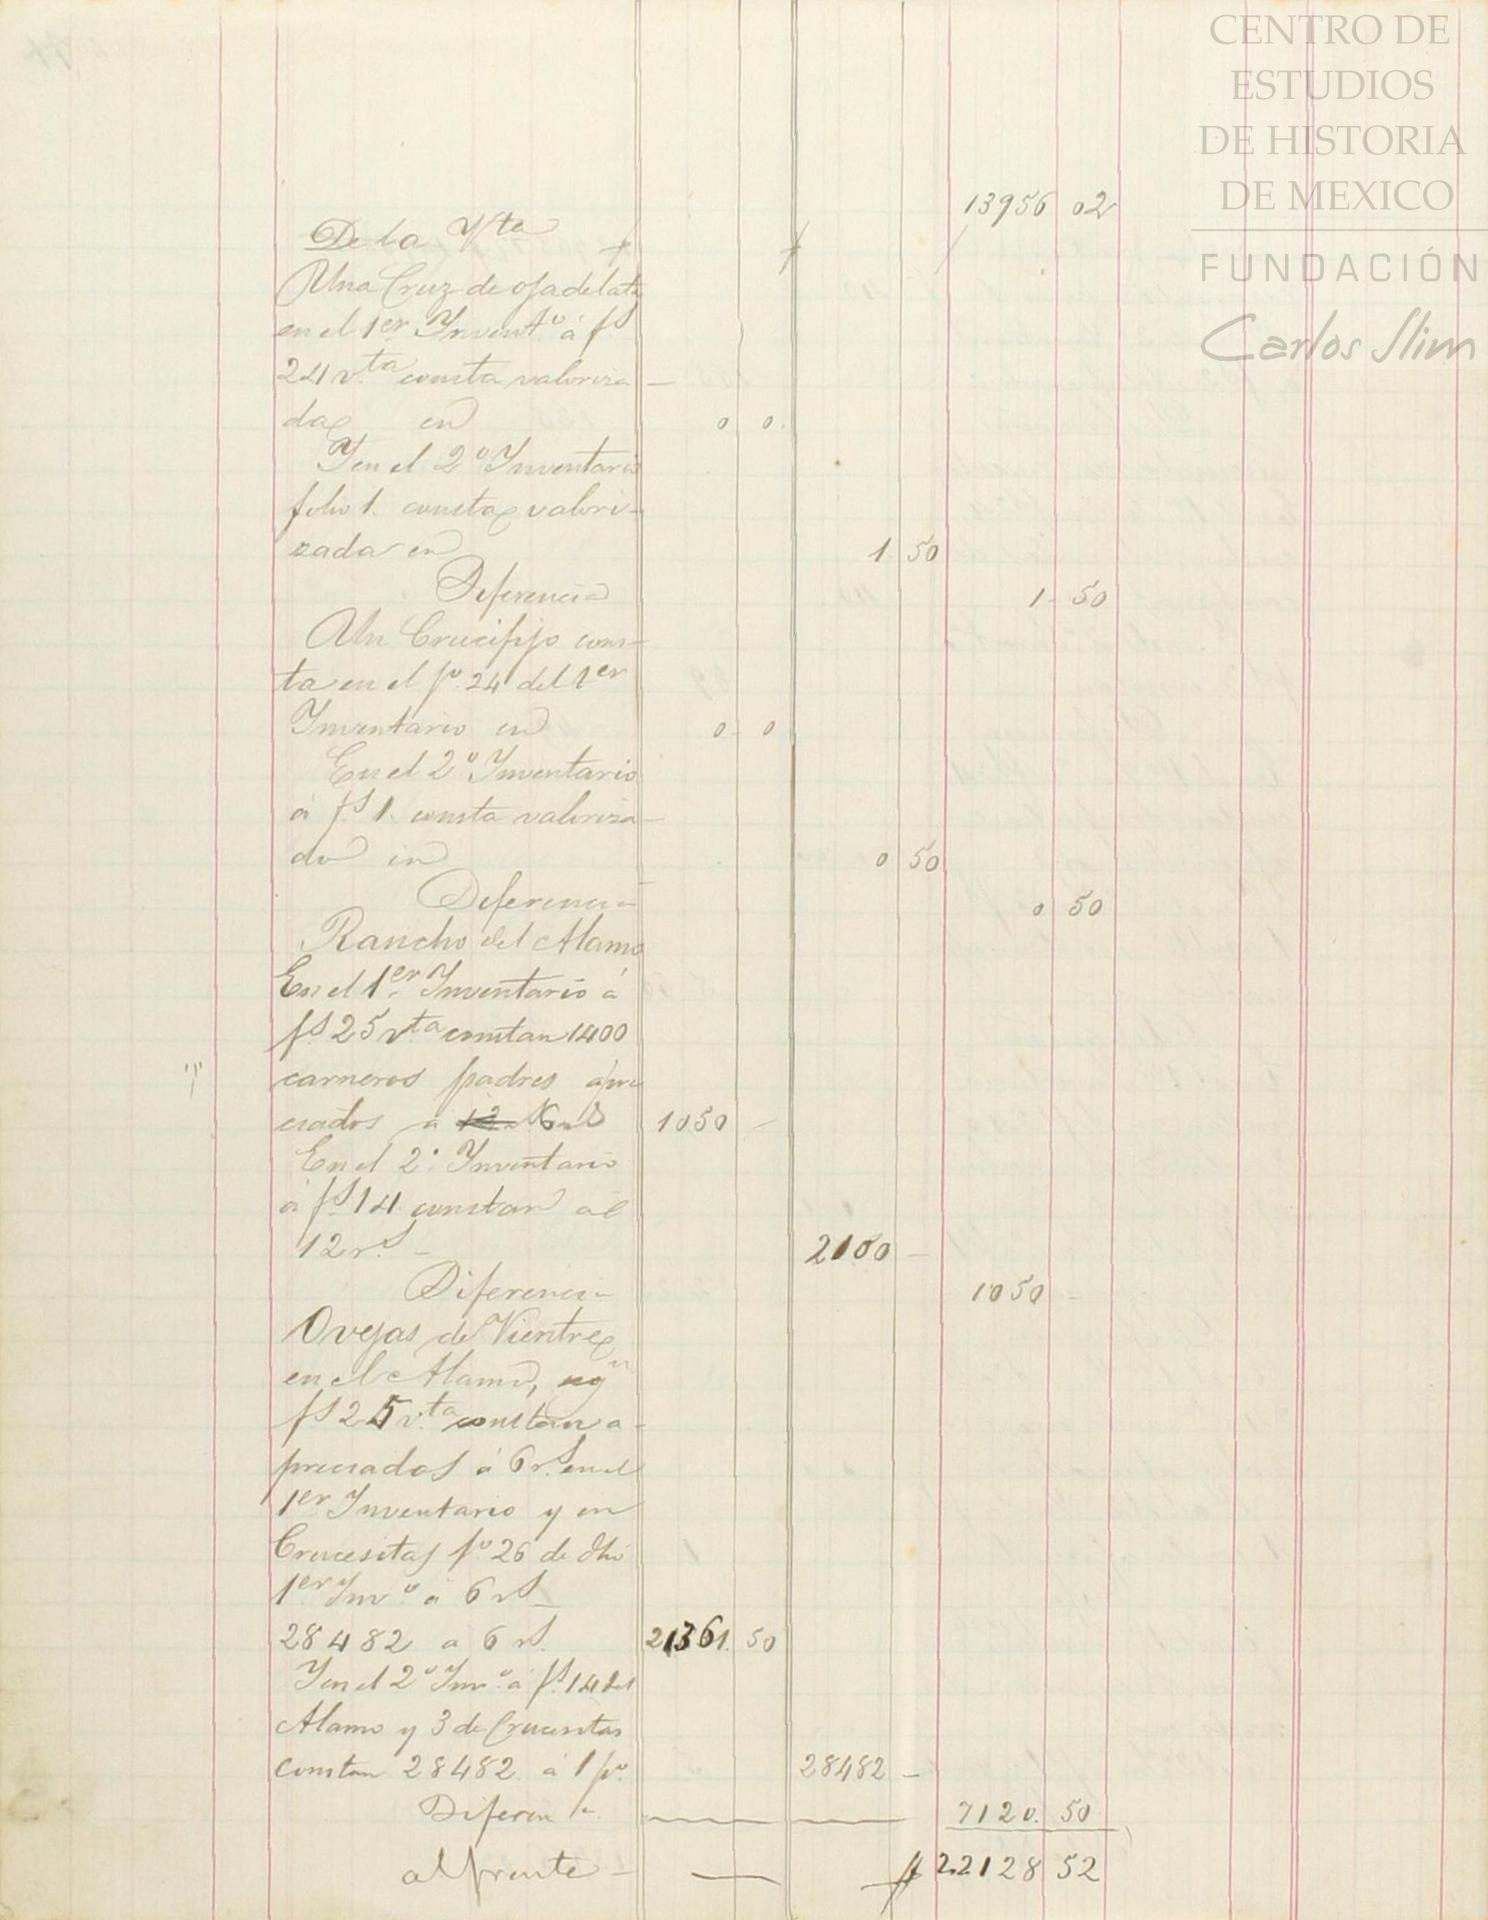 CENTRO DE
ESTUDIOS
DE HISTORIA
DE MEXICO
FUNDACIÓN
Carlos Slim
13956 02
De la Vta
Una Cruz de ojadelata
en el 1er Invento á fs
24 vta consta valoriza-
da en 0 0
Y en el 2o Inventario
folio 1. consta valori-
zada en 1 50
Diferencia 1 50
Un Crucifijo cons-
ta en el fo 24 del 1er
Inventario en 0 0
En el 2o Inventario
á fs 1. consta valoriza-
do en 0 50
Diferencia 0 50
Rancho del Alamo
En el 1er Inventario á
fs 25 vta constan 1400
carneros padres apre
ciados a 12 6 rs 1050 -
En el 2o Inventario
á fs 14 constan al
12 rs - 2100 -
Diferencia 1050 -
Ovejas de Vientre
en el Alamo, segn
fs 25 vta constan a-
preciados á 6 rs en el
1er Inventario y en
Crucesitas fo 26 de dho
1er Invo a 6 rs
28482 a 6 rs 21361. 50
Y en el 2o Invo a fs 14 del
Alamo y 3 de Crucesitas
constan 28482 á 1 po. 28482 -
Diferena 7120. 50
al frente - $ 22128 52